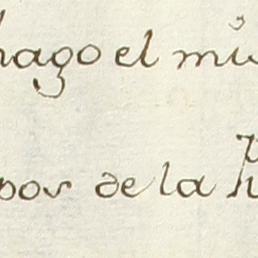 hago el
pos de la